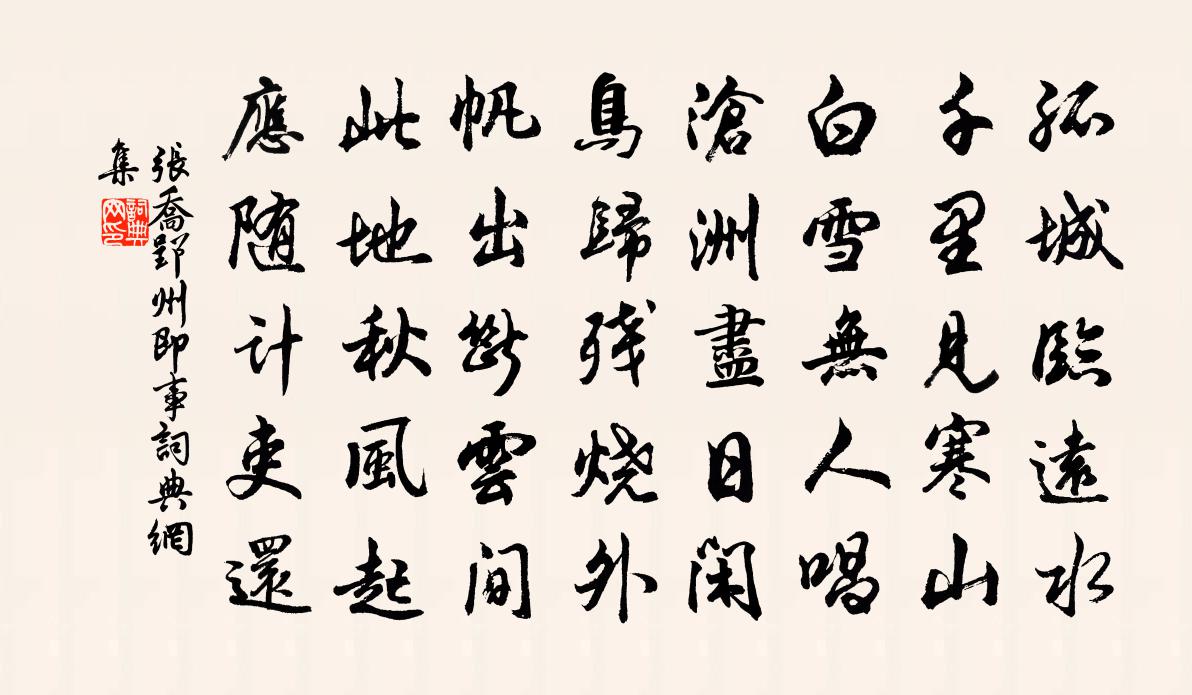 孤城臨遠水
千里見寒山
白雪無人唱
滄洲盡日闲
鳥歸残烧外
帆出斷雲间
此地秋風起
應随计吏還
張喬郢州即事詞典網
集
詞典网印